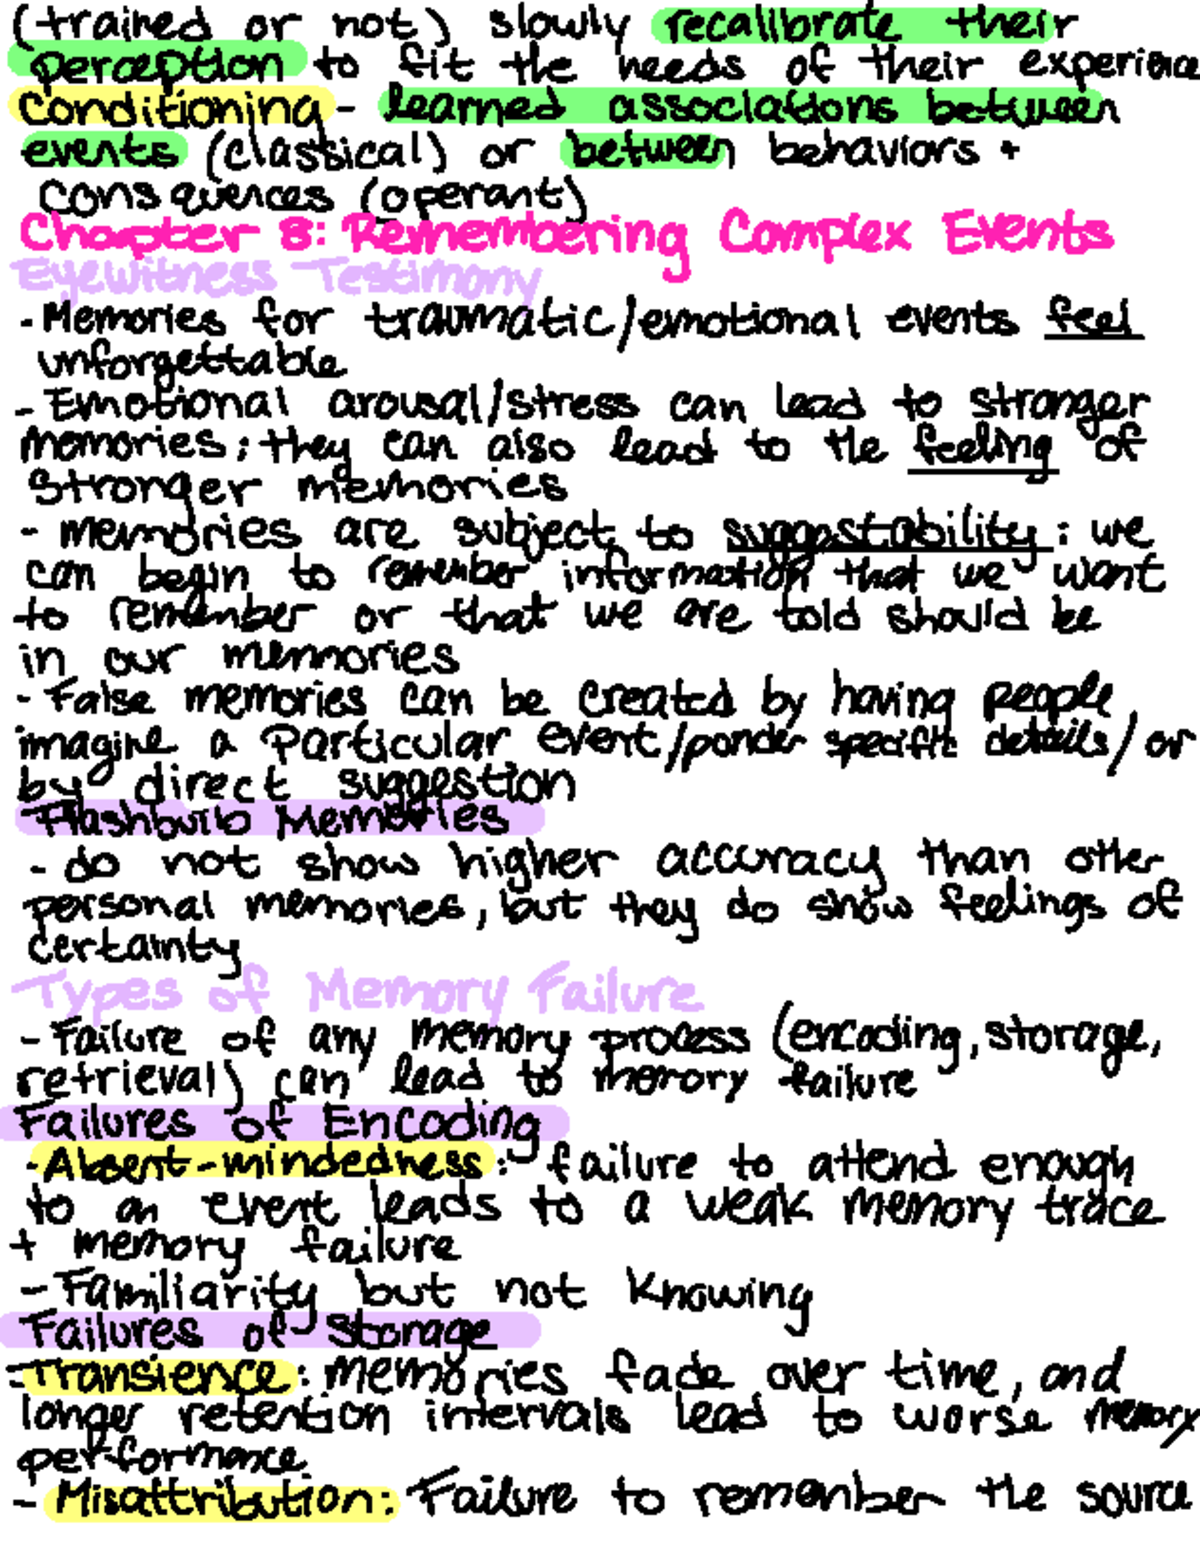 (trained or not) slowly recalibrate their
perception to fit the needs of their experience
Conditioning - learned associations between
events (classical) or between behaviors +
consquences (operant)
Chapter 8: Remembering Complex Events
Eyewitness Testimony
- Memories for traumatic/emotional events feel
unforgettable
- Emotional arousal/stress can lead to stronger
memories; they can also lead to the feeling of
stronger memories
- memories are subject to suggestability: we
can begin to remember information that we want
to remember or that we are told should be
in our memories
- False memories can be created by having people
imagine a particular event/ponder specific details/or
by direct suggestion
Flashbulb Memories
- do not show higher accuracy than other
personal memories, but they do show feelings of
certainty
Types of Memory Failure
- Failure of any memory process (encoding, storage,
retrieval) can lead to memory failure
Failures of Encoding
- Absent-mindedness: failure to attend enough
to an event leads to a weak memory trace
+ memory failure
- Familiarity but not knowing
Failures of Storage
- Transience: memories fade over time, and
longer retention intervals lead to worse memory
performance
- Misattribution: Failure to remember the source